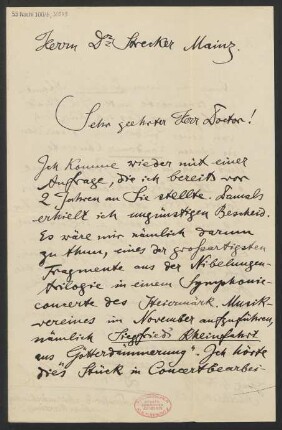 Herrn Dr. Strecker Mainz.
Sehr geehrter Herr Doctor!
Ich komme wieder mit einer
Anfrage, die ich bereits vor
2 Jahren an Sie stellte. Damals
erhielt ich ungünstigen Bescheid.
Es wäre mir nämlich darum
zu thun, eines der großartigsten
Fragmente aus der Nibelungen-
trilogie in einem Symphonie-
concerte des Steiermärk. Musik-
vereines im November aufzuführen,
nämlich Siegfrieds Rheinfahrt
aus "Götterdämmerung". Ich hörte
dies Stück in Concertbearbei-